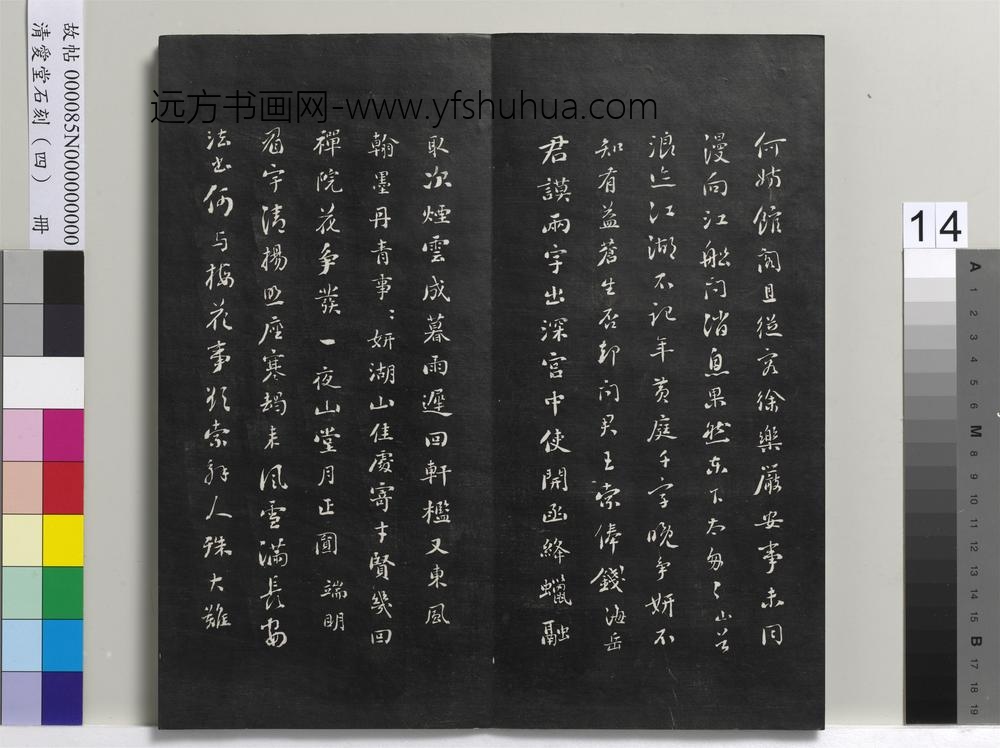 何妨館閣且從容徐樂嚴安事未同
漫向江船問消息果然東下太匆匆山谷
浪迹江湖不記年黃庭千字晚爭妍不
知有益蒼生否却問君王索俸錢海岳
君謨兩字出深宮中使開函絳蠟融
取次煙雲成暮雨遲回軒檻又東風
翰墨丹青事事妍湖山佳處寄才賢幾回
禪院花爭發一夜山堂月正圓端明
眉宇清揚照座寒朅来風雪滿長安
法書何与梅花事頻索解人殊大難
远方书画网-www.yfshuhua.com
故帖 000085N000000000
清愛堂石刻(四) 冊
14
A 1 2 3 4 5 6 M 8 9 10 11 12 13 14 15 B 17 18 19